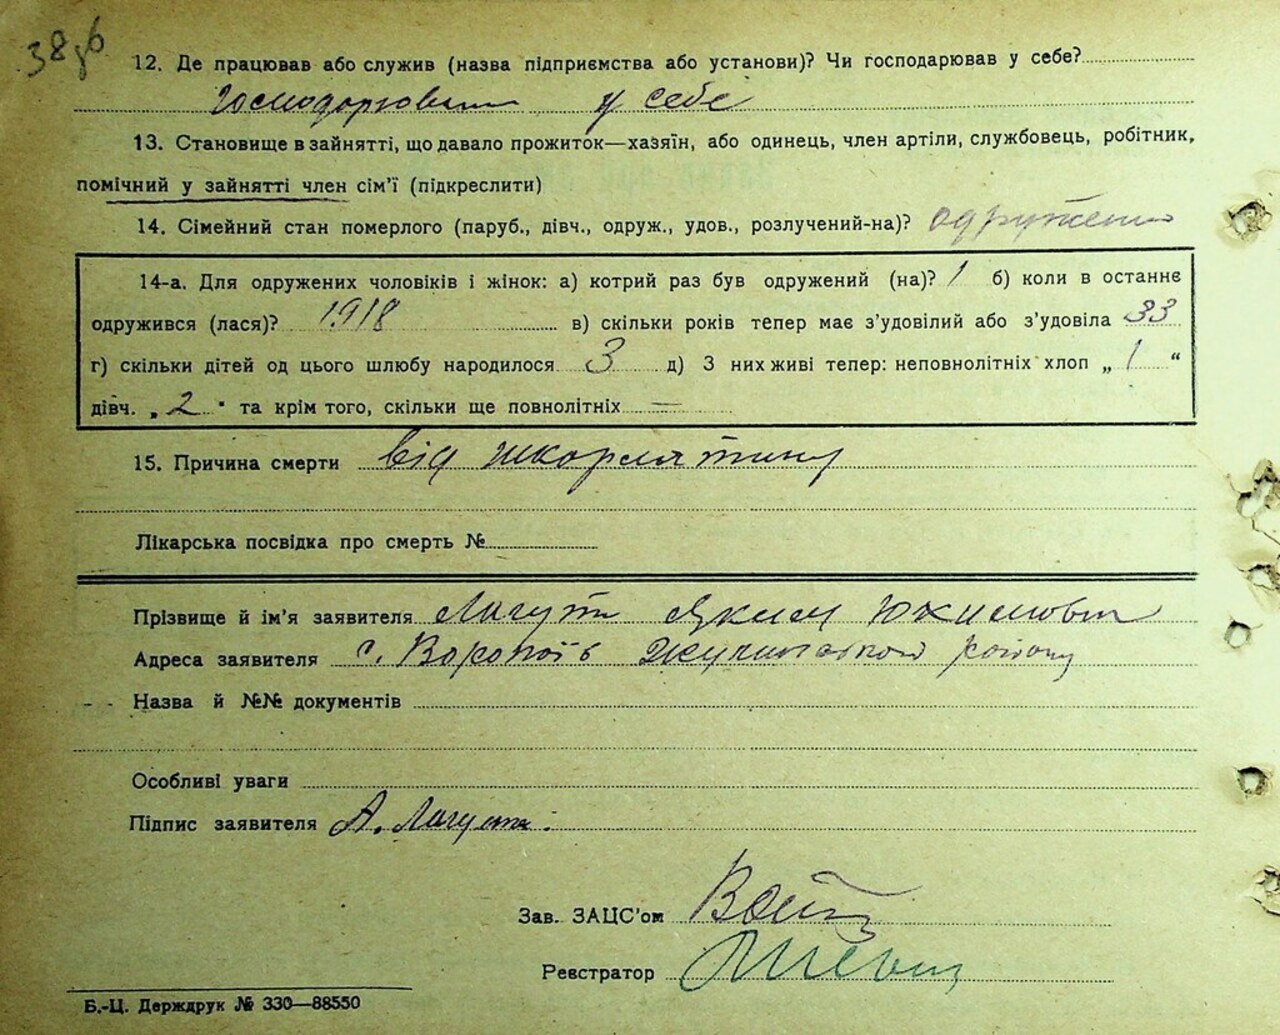 38зб
12. Де працював або служив (назва підприємства або установи)? Чи господарював у себе?
Господорювала у себе
13. Становище в зайнятті, що давало прожиток—хазяїн, або одинець, член артіли, службовець, робітник,
помічний у зайнятті член сім’ї (підкреслити)
14. Сімейний стан померлого (паруб., дівч., одруж., удов., розлучений-на)? одружена
14-а. Для одружених чоловіків і жінок: а) котрий раз був одружений (на)? 1 б) коли в останнє
одружився (лася)? 1918 в) скільки років тепер має з’удовілий або з’удовіла 33
г) скільки дітей од цього шлюбу народилося 3 д) З них живі тепер: неповнолітніх хлоп „ 1 “
дівч. „ 2 “ та крім того, скільки ще повнолітніх —
15. Причина смерти від шкорлятини
Лікарська посвідка про смерть №
Прізвище й ім’я заявителя Лагута Яким Юхимович
Адреса заявителя с. Воропаїв району
Назва й №№ документів
Особливі уваги
Підпис заявителя Лагута
Зав. ЗАЦС’ом
Реєстратор
Б.-Ц. Держдрук № 330—88550